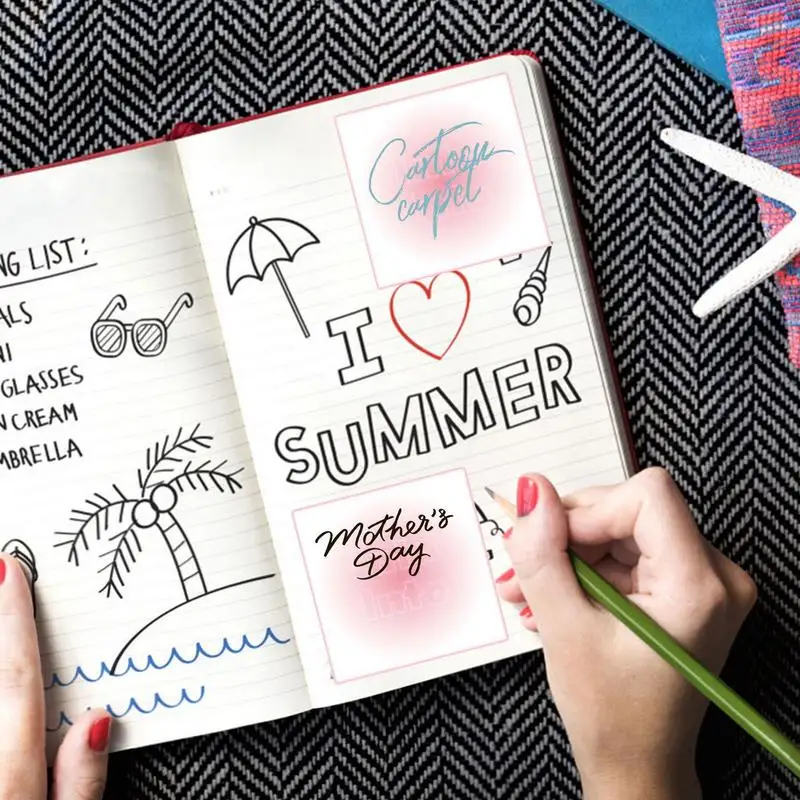 NG LIST:
ALS
NI
GLASSES
N CREAM
MBRELLA
Cartoon
carpet
I
SUMMER
Mother's
Day